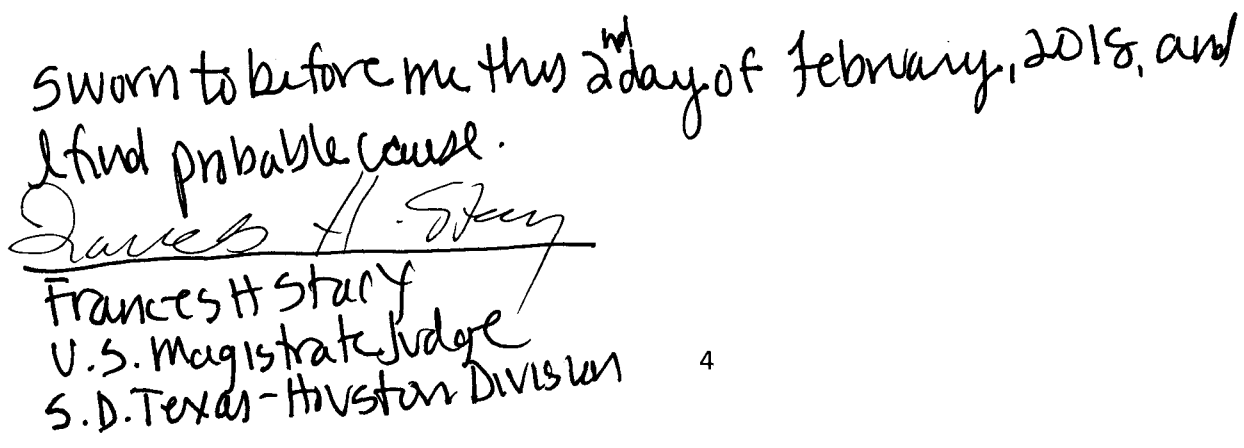 sworn to before me this 2nd day of February, 2018, and
I find probable cause.
Frances H. Stacy
Frances H Stacy
U.S. Magistrate Judge
S.D. Texas - Houston Division
4